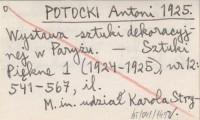 POTOCKI Antoni 1925.
Wystawa sztuki dekoracyj
nej w Paryżu. — Sztuki
Piękne 1 (1924-1925), nr 12:
541-567, il.
M. in. udział Karola Stry-